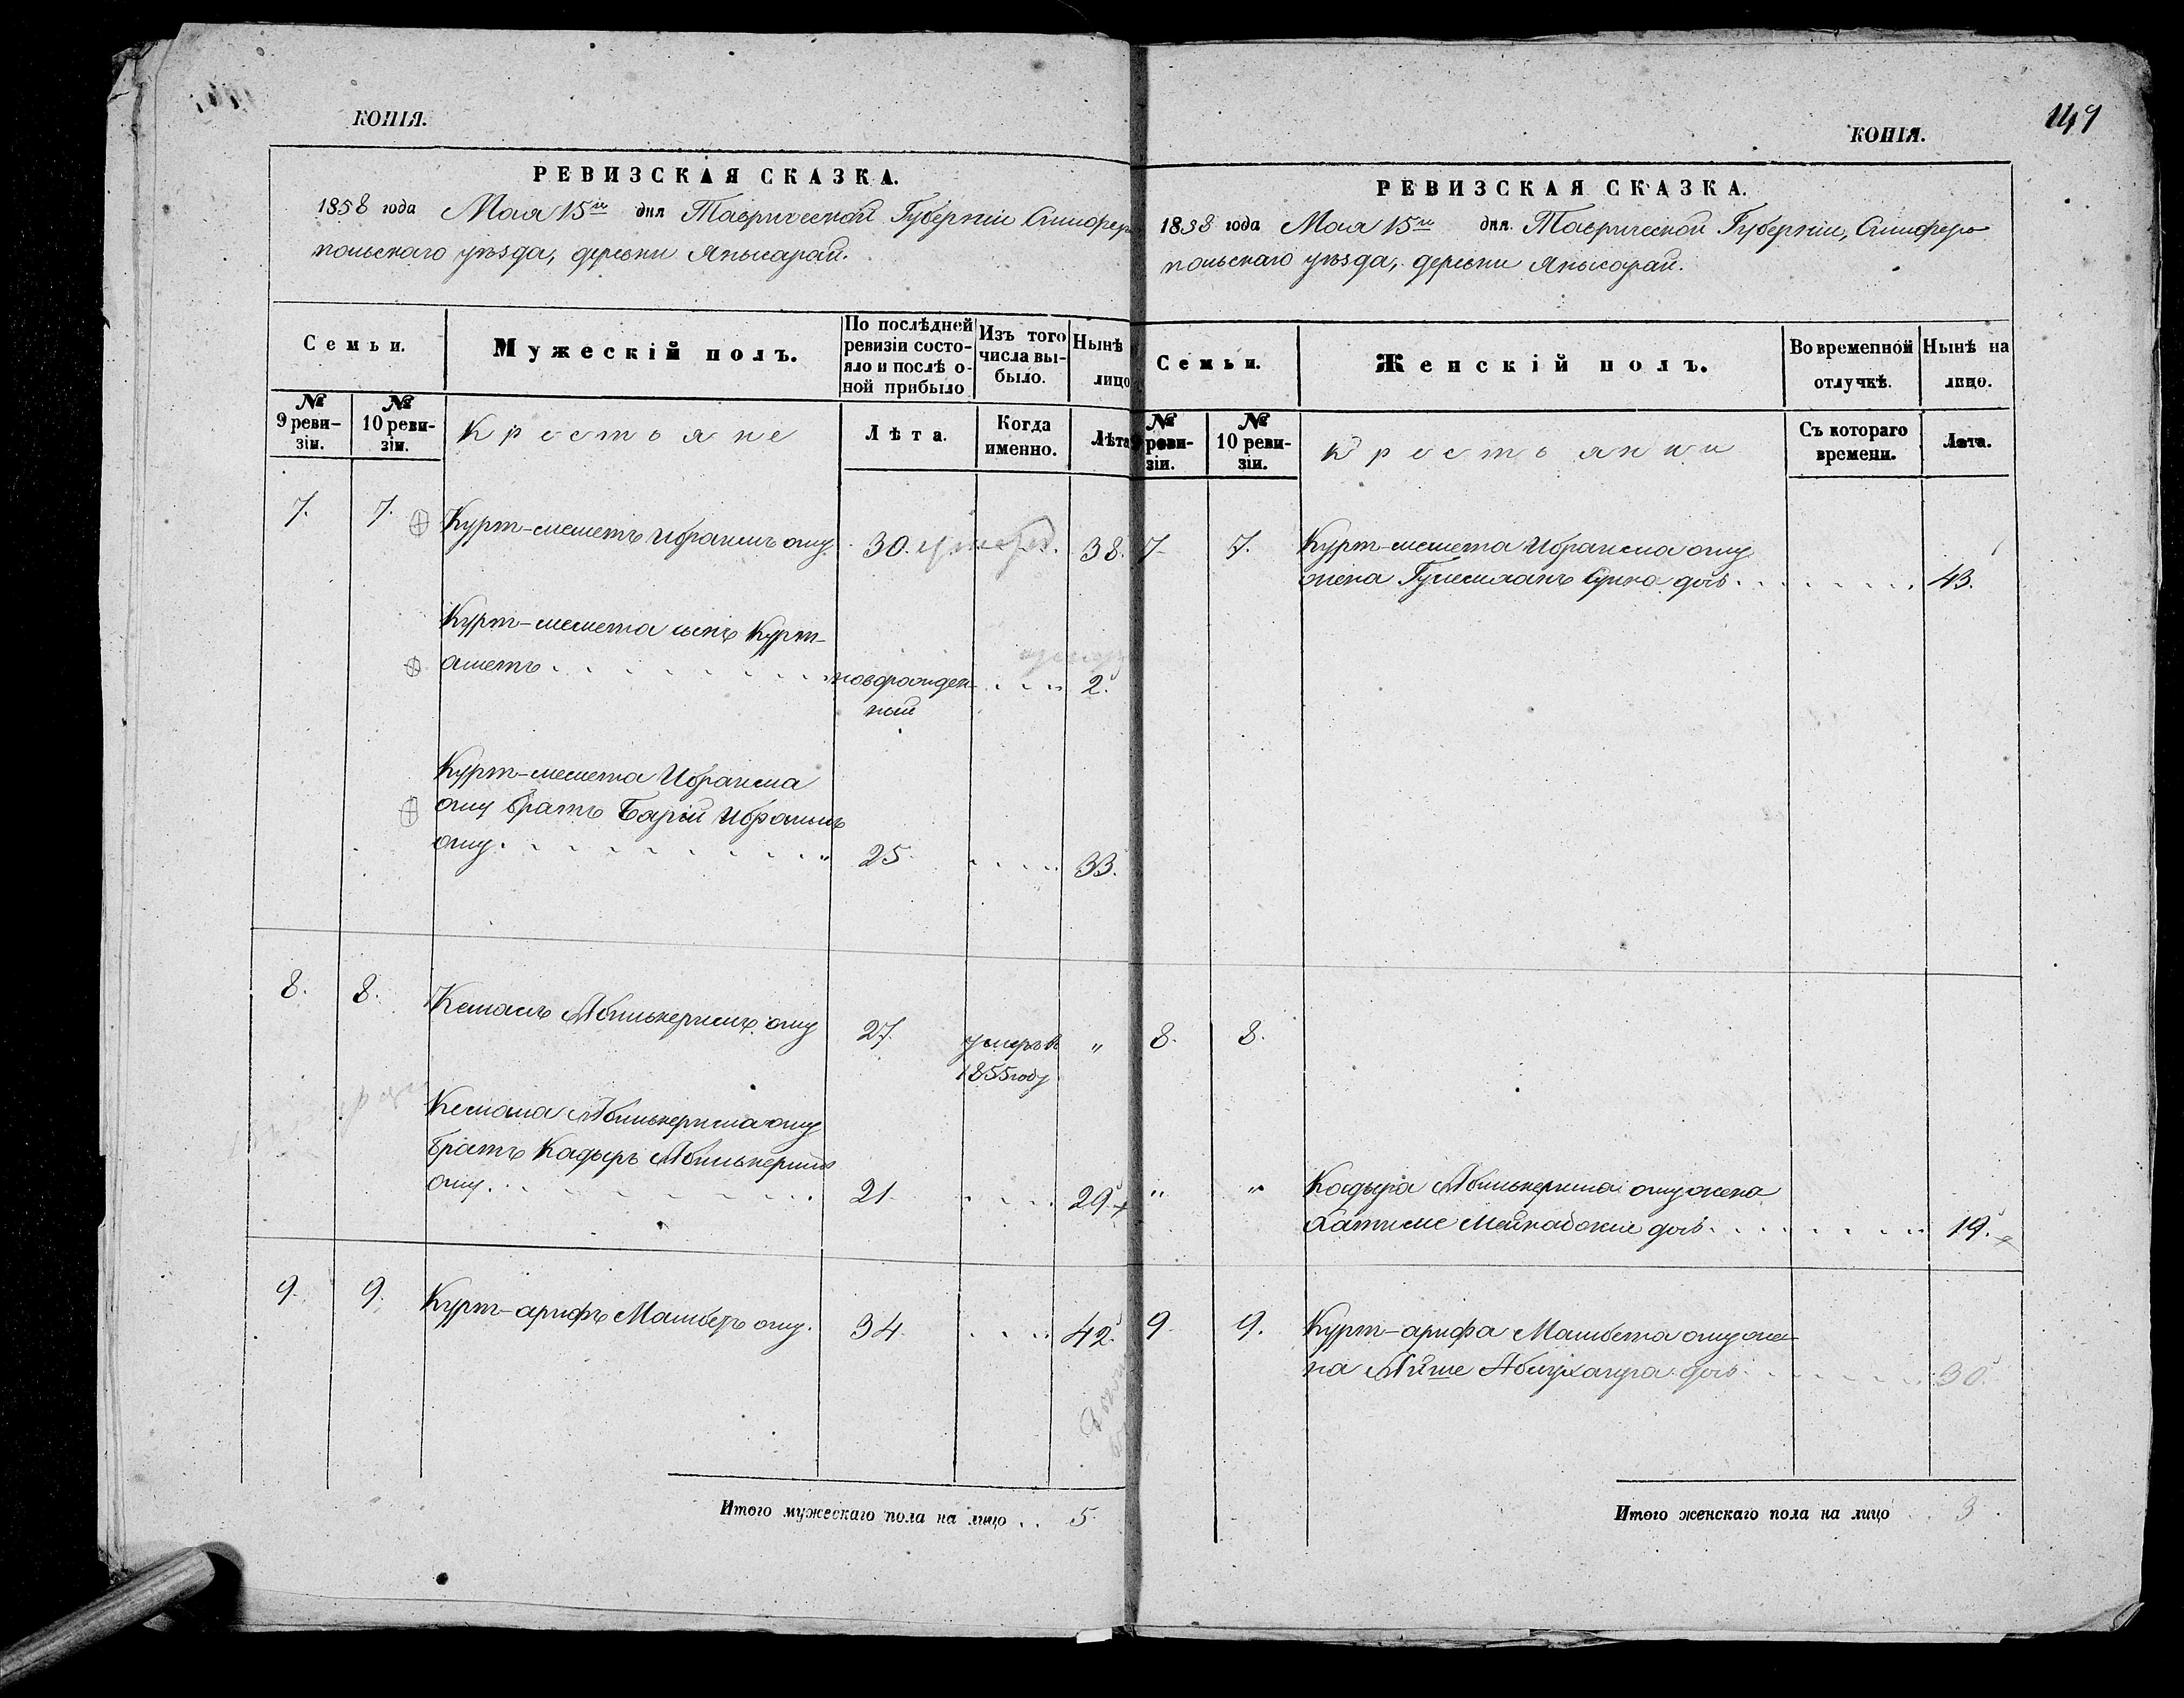 КОПІЯ.
РЕВИЗСКАЯ СКАЗКА.
1858 года Мая 15го дня Таврической Губерніи Симферо
польскаго уѣзда, деревни Янысарай.
Семьи.
Мужескій полъ.
По послѣдней
ревизіи состо-
яло и послѣ о-
ной прибыло
Изъ того
числа вы-
было.
Нынѣ
лицо
№
9 реви-
зіи.
№
10 реви-
зіи.
Крестьяне
Лѣта.
Когда
именно.
Лѣта
7. 7. Курт-меметъ Ибраимъ оглу 30. 38.
Курт-мемета сынъ Курт-
аметъ новорожден- 2.
ный
Курт-мемета Ибраима
оглу братъ Барій Ибраимъ
оглу 25. 33.
8. 8. Кемалъ Абилькеримъ оглу 27. умеръ въ "
1855 году
Кемала Абилькерима оглу
братъ Кадыръ Абилькеримъ
оглу. 21. 29.
9. 9. Курт-арифъ Мамбетъ оглу. 34. 42.
Итого мужескаго пола на лицо . . 5.
149
КОПІЯ.
РЕВИЗСКАЯ СКАЗКА.
1858 года Мая 15го дня Таврической Губерніи, Симферо
польскаго уѣзда, деревни Янысарай.
Семьи.
Женскій полъ.
Во временной
отлучкѣ.
Нынѣ на
лицо.
№
реви-
зіи.
№
10 реви-
зіи.
Крестьянки
Съ котораго
времени.
Лѣта.
7. 7. Курт-мемета Ибраима оглу
жена 43.
8. 8.
" " Кадыра Абилькерима оглу жена
Хатиме 19.
9. 9. Курт-арифа Мамбета оглу же-
на Айше 30.
Итого женскаго пола на лицо . . 3.